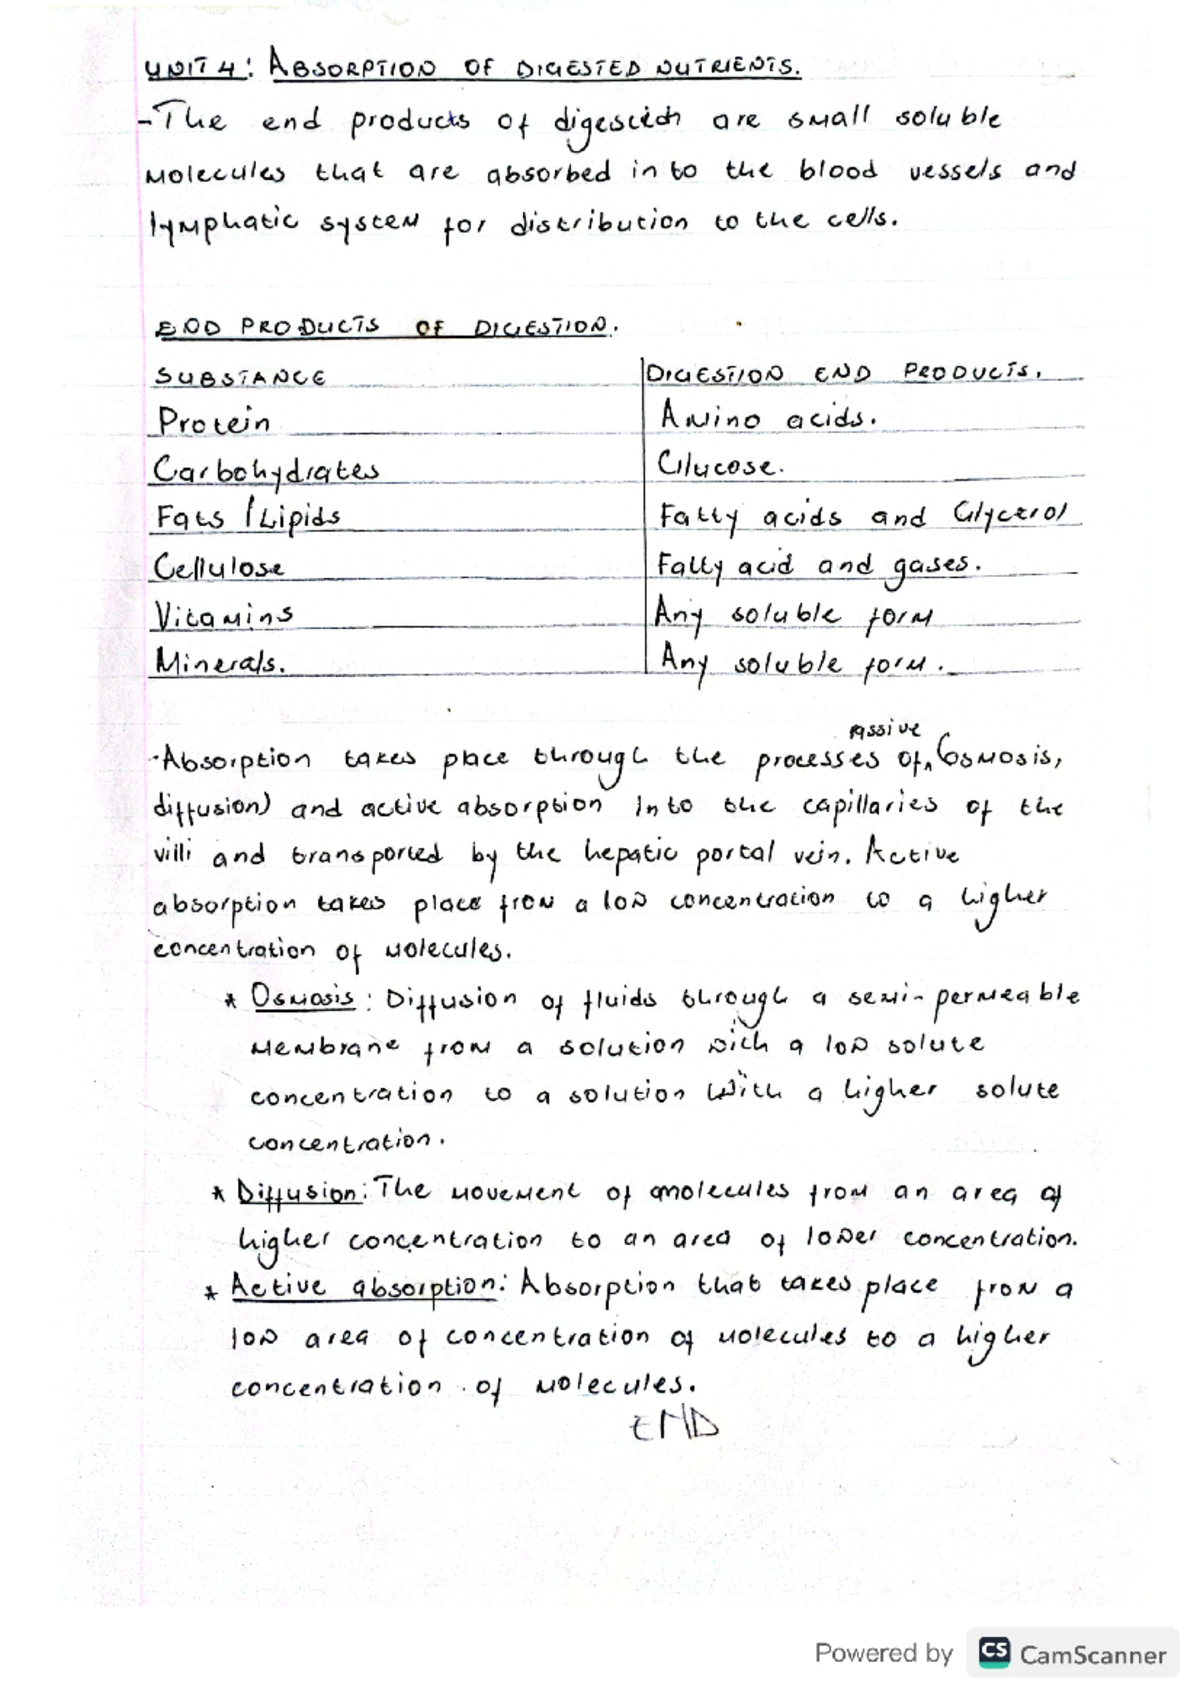 UNIT 4: ABSORPTION OF DIGESTED NUTRIENTS.
-The end products of digestion are small soluble
molecules that are absorbed in to the blood vessels and
lymphatic system for distribution to the cells.
END PRODUCTS OF DIGESTION.
SUBSTANCE DIGESTION END PRODUCTS.
Protein Amino acids.
Carbohydrates Glucose.
Fats / Lipids Fatty acids and Glycerol
Cellulose Fatty acid and gases.
Vitamins Any soluble form
Minerals. Any soluble form.
passive
-Absorption takes place through the processes of ^ (osmosis,
diffusion) and active absorption into the capillaries of the
villi and transported by the hepatic portal vein. Active
absorption takes place from a low concentration to a higher
concentration of molecules.
* Osmosis: Diffusion of fluids through a semi-permeable
membrane from a solution with a low solute
concentration to a solution with a higher solute
concentration.
* Diffusion: The movement of molecules from an area of
higher concentration to an area of lower concentration.
* Active absorption: Absorption that takes place from a
low area of concentration of molecules to a higher
concentration of molecules.
END
Powered by CS CamScanner